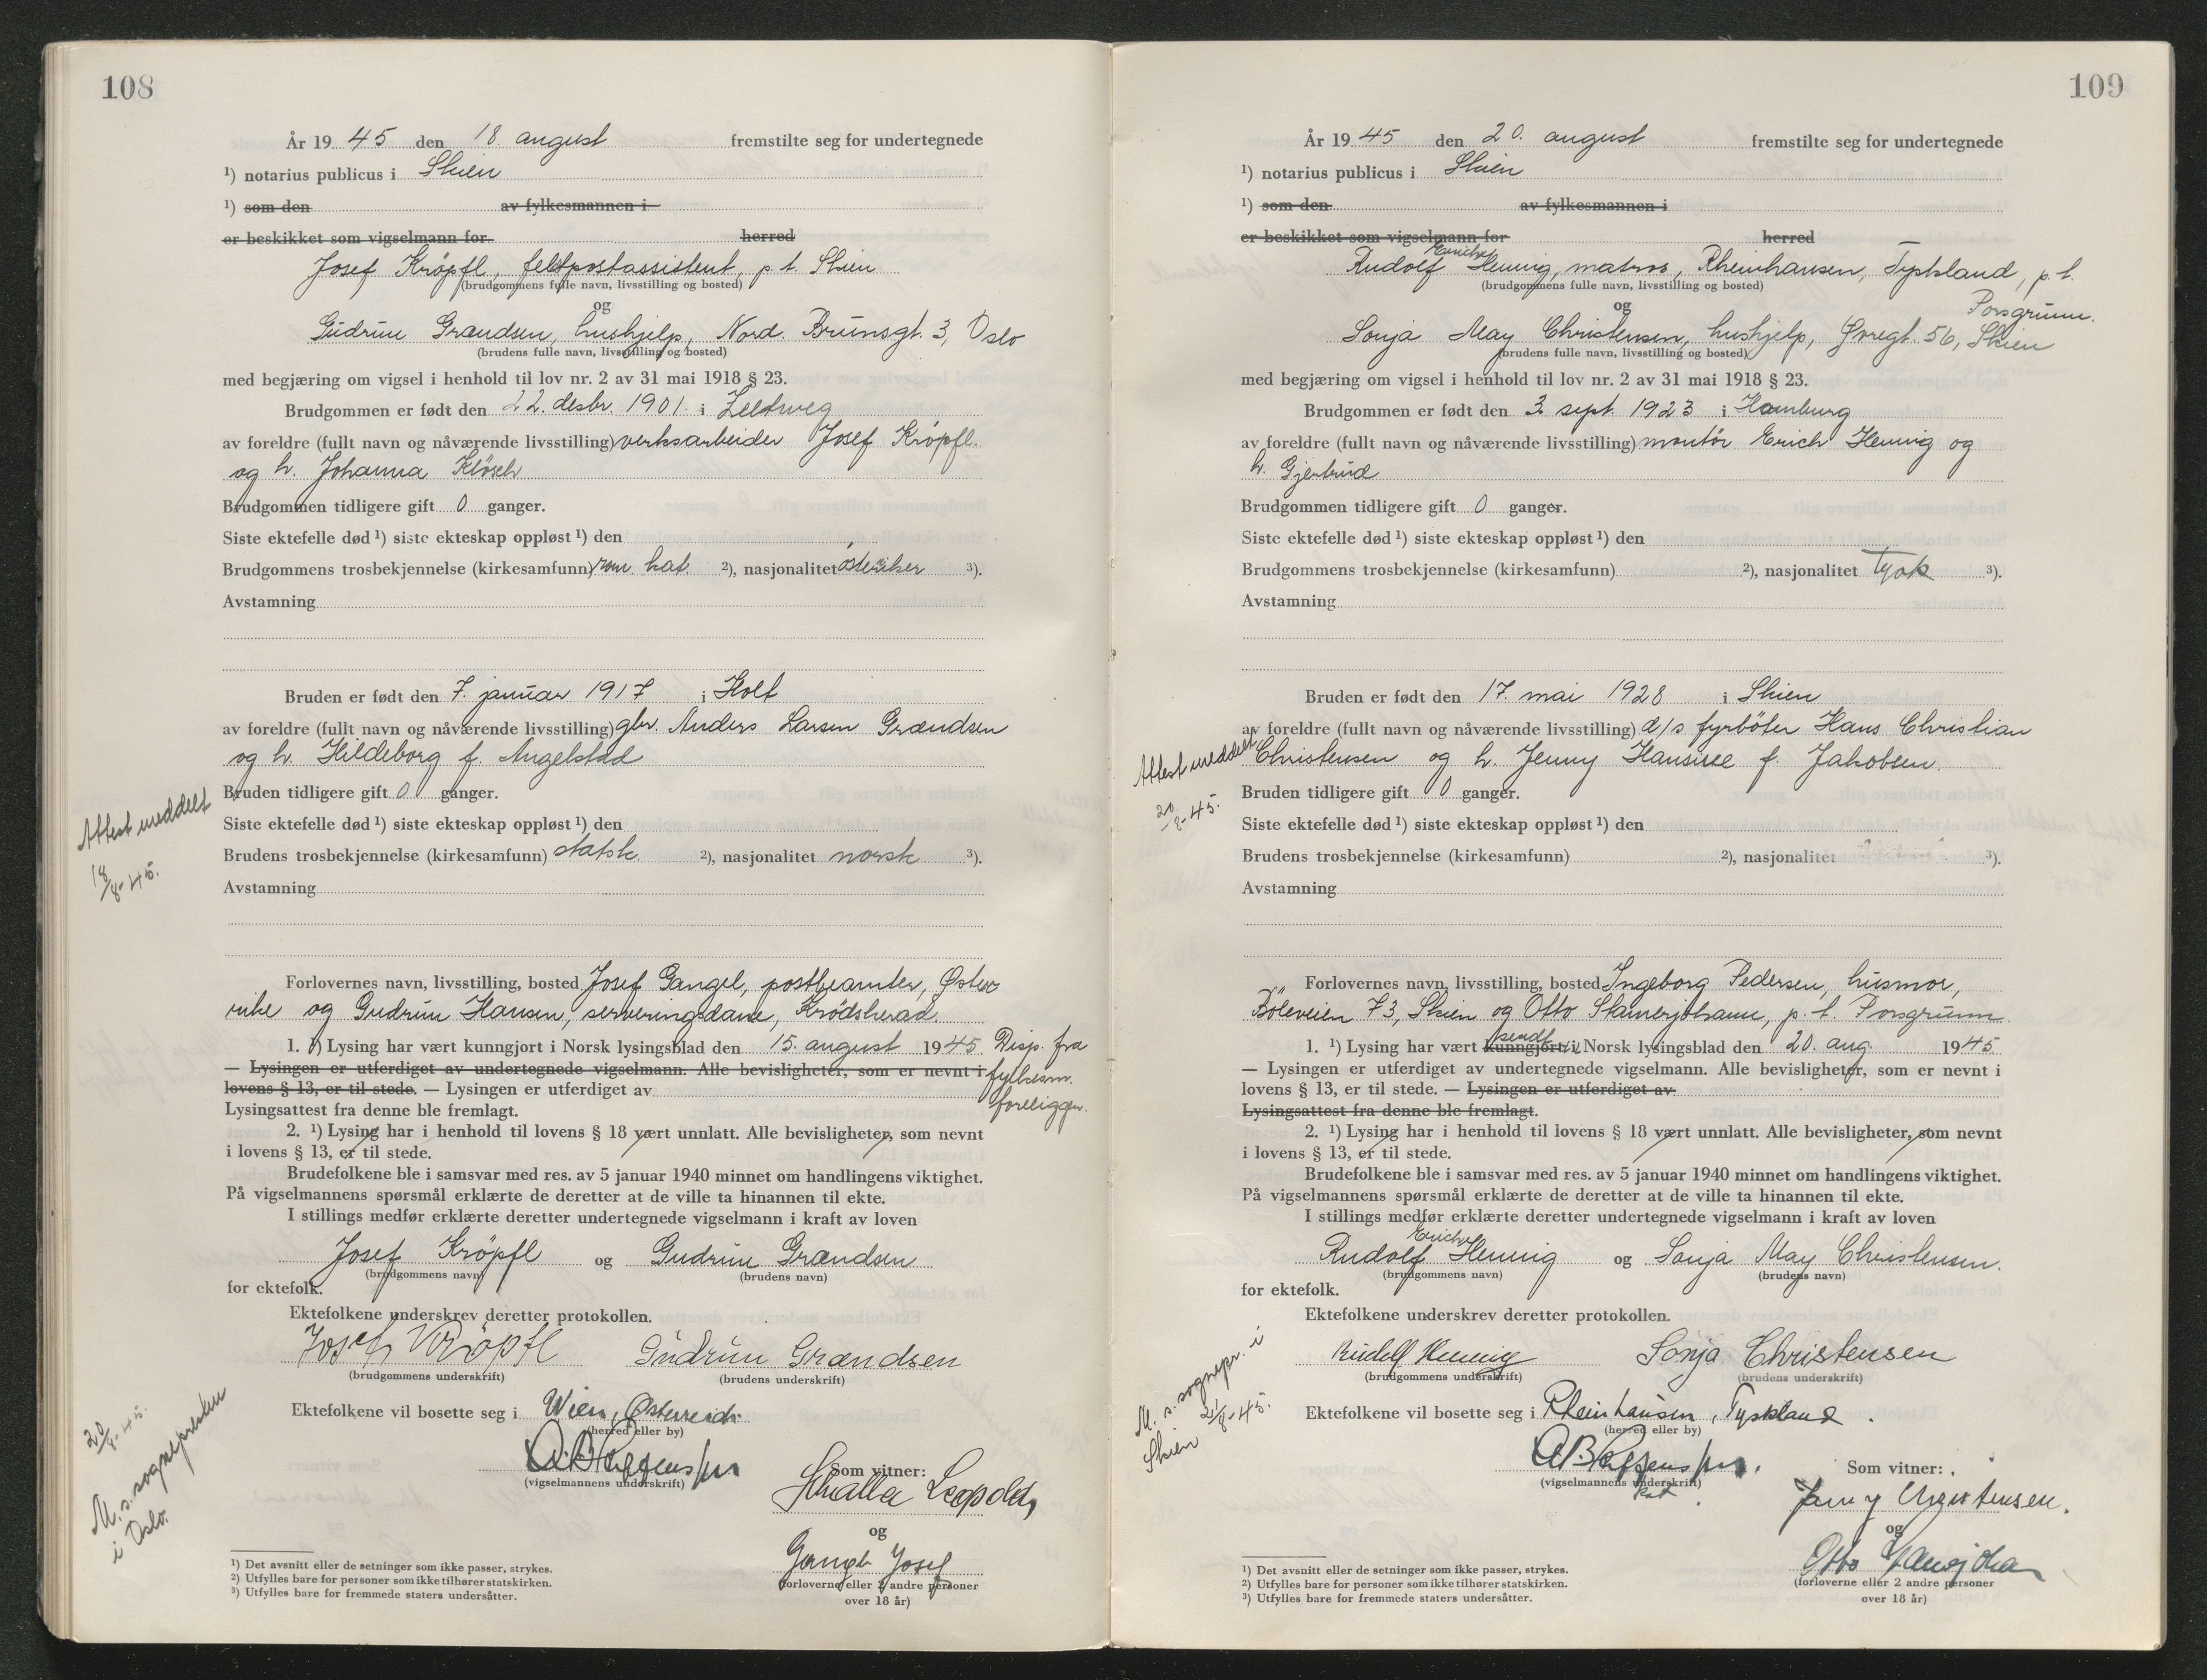 108
År 19 45 den 18 august fremstilte seg for undertegnede
¹) notarius publicus i Skien
¹) som den av fylkesmannen i
er beskikket som vigselmann for herred
Josef Kröpfl, feltpostassistent, p. t. Skien
(brudgommens fulle navn, livsstilling og bosted)
og
Gudrun Grændsen, hushjelp, Nord. Brunsgt. 3, Oslo
(brudens fulle navn, livsstilling og bosted)
med begjæring om vigsel i henhold til lov nr. 2 av 31 mai 1918 § 23.
Brudgommen er født den 22. desbr. 1901 i Zeltweg
av foreldre (fullt navn og nåværende livsstilling) verksarbeider Josef Kröpfl
og h. Johanna Klösch
Brudgommen tidligere gift 0 ganger.
Siste ektefelle død ¹) siste ekteskap oppløst ¹) den
Brudgommens trosbekjennelse (kirkesamfunn) rom. kat. ²), nasjonalitet østeriker ³).
Avstamning
Bruden er født den 7. januar 1917 i Holt
av foreldre (fullt navn og nåværende livsstilling) gbr. Anders Larsen Grændsen
og h. Hildeborg f. Angelstad
Bruden tidligere gift 0 ganger.
Attest meddelt
18/8-45.
Siste ektefelle død ¹) siste ekteskap oppløst ¹) den
Brudens trosbekjennelse (kirkesamfunn) statsk. ²), nasjonalitet norsk ³).
Avstamning
Forlovernes navn, livsstilling, bosted Josef Gangel, postbeamter, Øster-
rike og Gudrun Hansen, serveringsdame, Krødsherad.
1. ¹) Lysing har vært kunngjort i Norsk lysingsblad den 15. august 1945 Disp. fra
— Lysingen er utferdiget av undertegnede vigselmann. Alle bevisligheter, som er nevnt i fylkesm.
lovens § 13, er til stede. — Lysingen er utferdiget av foreligger.
Lysingsattest fra denne ble fremlagt.
2. ¹) Lysing har i henhold til lovens § 18 vært unnlatt. Alle bevisligheter, som nevnt
i lovens § 13, er til stede.
Brudefolkene ble i samsvar med res. av 5 januar 1940 minnet om handlingens viktighet.
På vigselmannens spørsmål erklærte de deretter at de ville ta hinannen til ekte.
I stillings medfør erklærte deretter undertegnede vigselmann i kraft av loven
Josef Kröpfl og Gudrun Grændsen
(brudgommens navn) (brudens navn)
for ektefolk.
Ektefolkene underskrev deretter protokollen.
Josef Kröpfl Gudrun Grændsen
(brudgommens underskrift) (brudens underskrift)
Ektefolkene vil bosette seg i Wien, Østerreich.
(herred eller by)
20/8-45.
M. s. sognepresten
i Oslo.
(vigselmannens underskrift)
Som vitner:
Leopold
og
Josef
(forloverne eller 2 andre personer
over 18 år)
¹) Det avsnitt eller de setninger som ikke passer, strykes.
²) Utfylles bare for personer som ikke tilhører statskirken.
³) Utfylles bare for fremmede staters undersåtter.
109
År 19 45 den 20. august fremstilte seg for undertegnede
¹) notarius publicus i Skien
¹) som den av fylkesmannen i
er beskikket som vigselmann for herred
Erich
Rudolf Hennig, matros, Rheinhausen, Tyskland, p. t.
(brudgommens fulle navn, livsstilling og bosted)
og Porsgrunn.
Sonja May Christensen, hushjelp, Øvregt. 56, Skien
(brudens fulle navn, livsstilling og bosted)
med begjæring om vigsel i henhold til lov nr. 2 av 31 mai 1918 § 23.
Brudgommen er født den 3. sept. 1923 i Hamburg
av foreldre (fullt navn og nåværende livsstilling) montör Erich Hennig og
h. Gjertrud
Brudgommen tidligere gift 0 ganger.
Siste ektefelle død ¹) siste ekteskap oppløst ¹) den
Brudgommens trosbekjennelse (kirkesamfunn) ²), nasjonalitet tysk ³).
Avstamning
Bruden er født den 17. mai 1928 i Skien
av foreldre (fullt navn og nåværende livsstilling) d/s fyrböter Hans Christian
Christensen og h. Jenny Hansine f. Jakobsen.
Attest meddelt
20/8-45.
Bruden tidligere gift 0 ganger.
Siste ektefelle død ¹) siste ekteskap oppløst ¹) den
Brudens trosbekjennelse (kirkesamfunn) ²), nasjonalitet ³).
Avstamning
Forlovernes navn, livsstilling, bosted Ingeborg Pedersen, husmor,
Böleveien 73, Skien og Otto Stamerjohann, p. t. Porsgrunn.
sendt
1. ¹) Lysing har vært kunngjort i Norsk lysingsblad den 20. aug. 1945
— Lysingen er utferdiget av undertegnede vigselmann. Alle bevisligheter, som er nevnt i
lovens § 13, er til stede. — Lysingen er utferdiget av
Lysingsattest fra denne ble fremlagt.
2. ¹) Lysing har i henhold til lovens § 18 vært unnlatt. Alle bevisligheter, som nevnt
i lovens § 13, er til stede.
Brudefolkene ble i samsvar med res. av 5 januar 1940 minnet om handlingens viktighet.
På vigselmannens spørsmål erklærte de deretter at de ville ta hinannen til ekte.
I stillings medfør erklærte deretter undertegnede vigselmann i kraft av loven
Erich
Rudolf Hennig og Sonja May Christensen.
(brudgommens navn) (brudens navn)
for ektefolk.
Ektefolkene underskrev deretter protokollen.
Rudolf Hennig Sonja Christensen
(brudgommens underskrift) (brudens underskrift)
M. s. sognepr. i
Skien 21/8-45.
Ektefolkene vil bosette seg i Rheinhausen, Tyskland.
(herred eller by)
(vigselmannens underskrift)
Som vitner:
Jenny Christensen.
og
Otto
(forloverne eller 2 andre personer
over 18 år)
¹) Det avsnitt eller de setninger som ikke passer, strykes.
²) Utfylles bare for personer som ikke tilhører statskirken.
³) Utfylles bare for fremmede staters undersåtter.